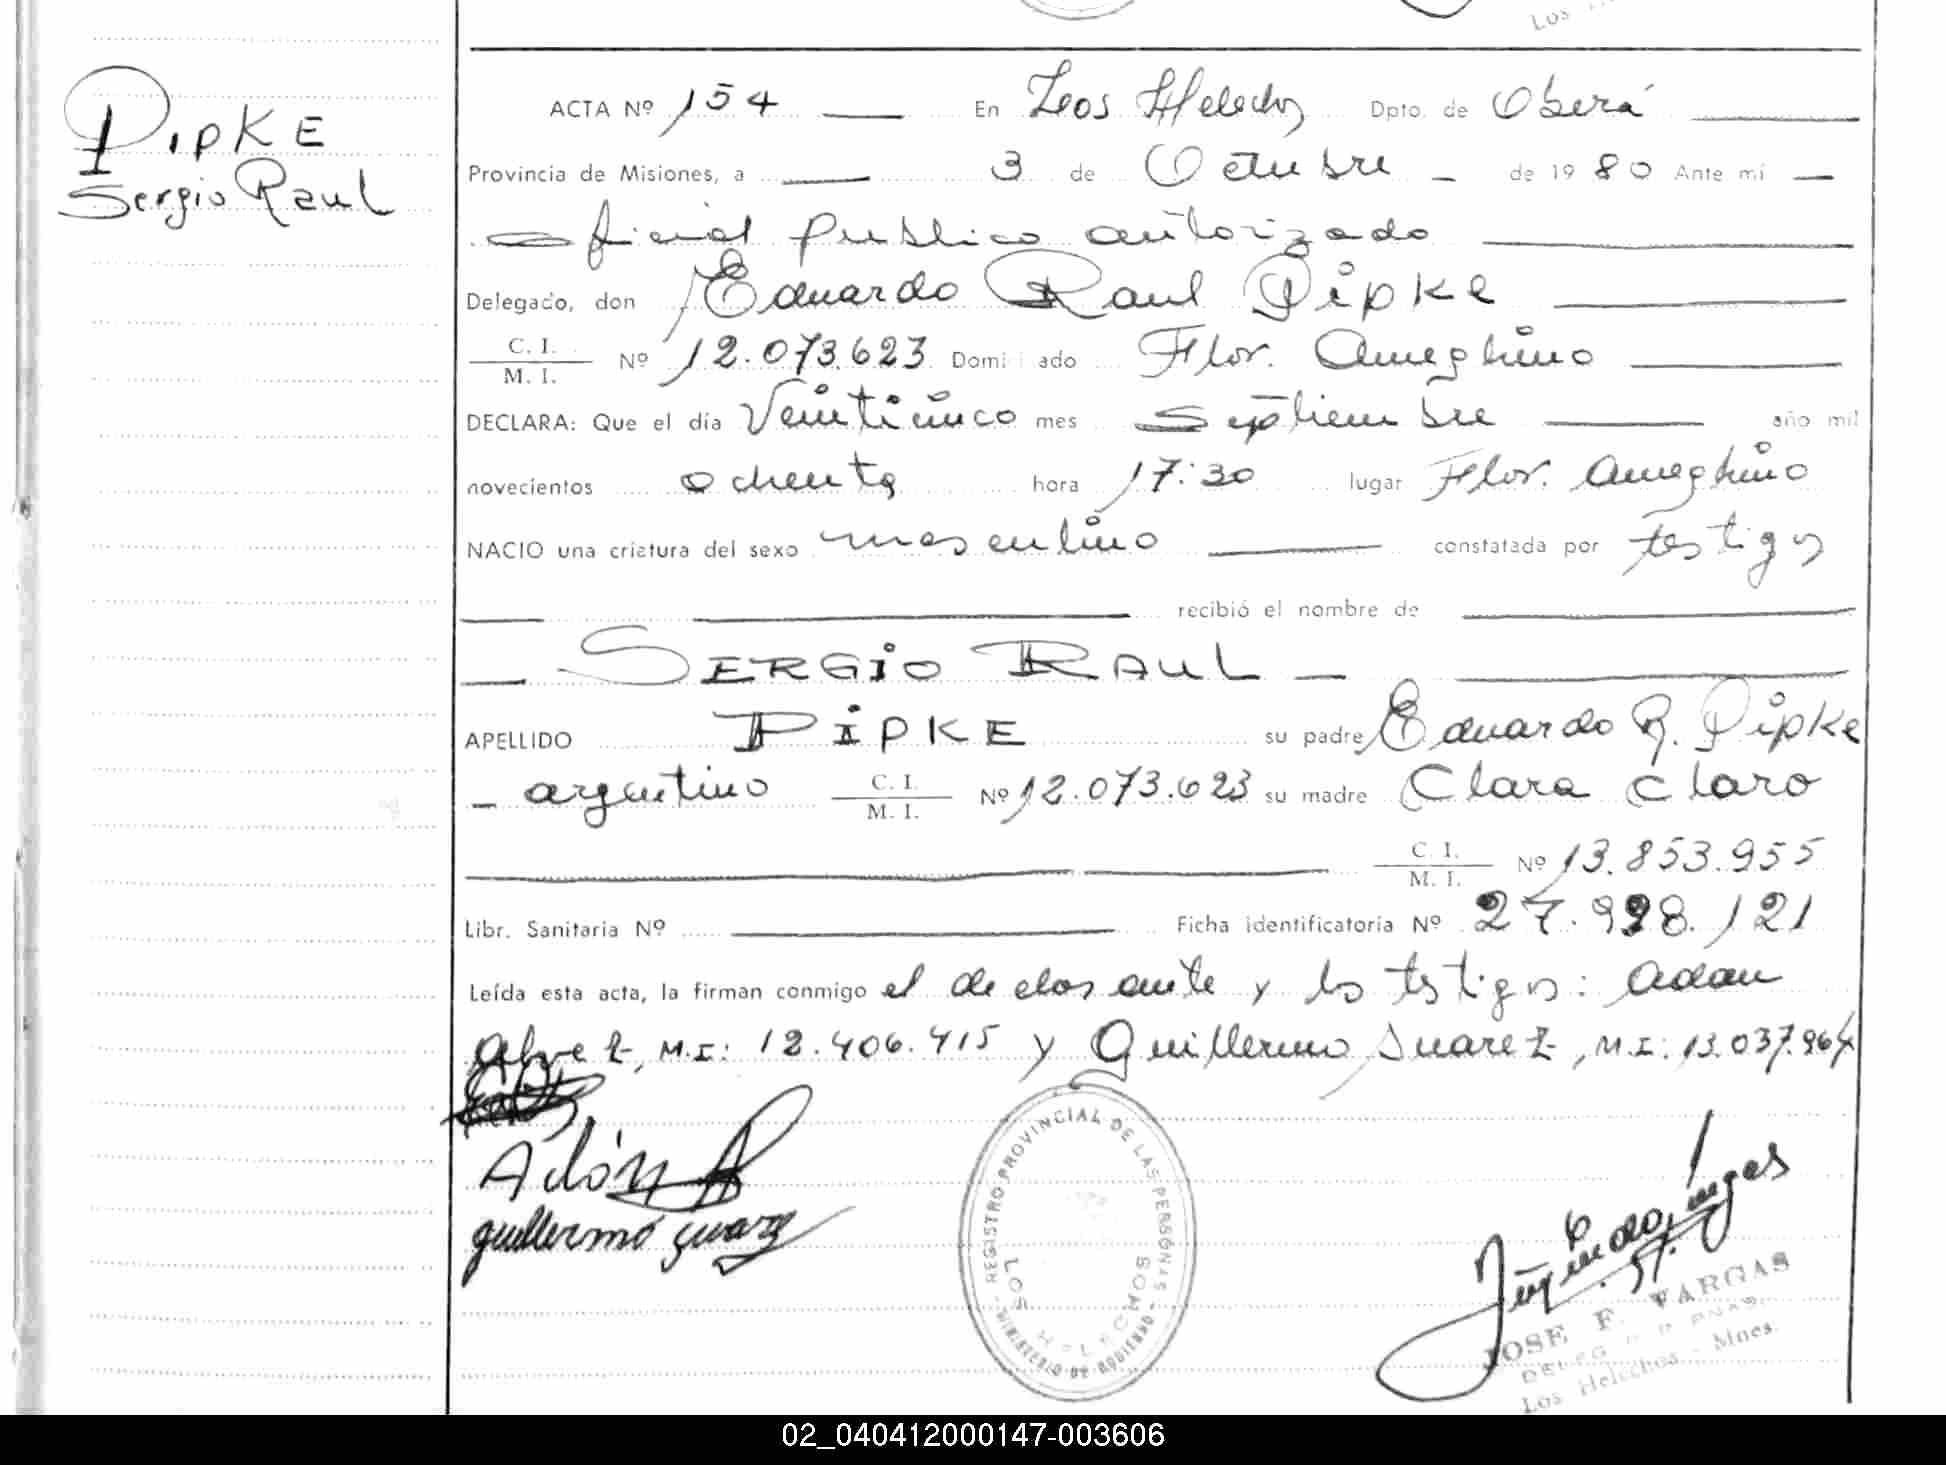 Los
PIPKE
Sergio Raul
ACTA Nº 154 En Los Helechos Dpto. de Oberá
Provincia de Misiones, a 3 de Octubre de 1980 Ante mi
oficial Publico autorizado
Delegado, don Eduardo Raul Pipke
C. I.
M. I. Nº 12.073.623 Domiciliado Flor. Ameghino
DECLARA: Que el día Veinticinco mes Septiembre año mil
novecientos ochenta hora 17:30 lugar Flor. Ameghino
NACIO una criatura del sexo masculino constatada por testigos
recibió el nombre de
SERGIO RAUL
APELLIDO PIPKE su padre Eduardo R. Pipke
argentino C. I.
M. I. Nº 12.073.623 su madre Clara Claro
C. I.
M. I. Nº 13.853.955
Libr. Sanitaria Nº Ficha identificatoria Nº 27.998.121
Leída esta acta, la firman conmigo el declarante y los testigos: Adan
Alvez, M.I: 12.406.415 y Guillermo Suarez, M.I: 13.037.964
Adán A
guillermo suarez
REGISTRO PROVINCIAL DE LAS PERSONAS
LOS HELECHOS
MINISTERIO DE GOBIERNO
JOSE F. VARGAS
Los Helechos - Mnes.
02_040412000147-003606